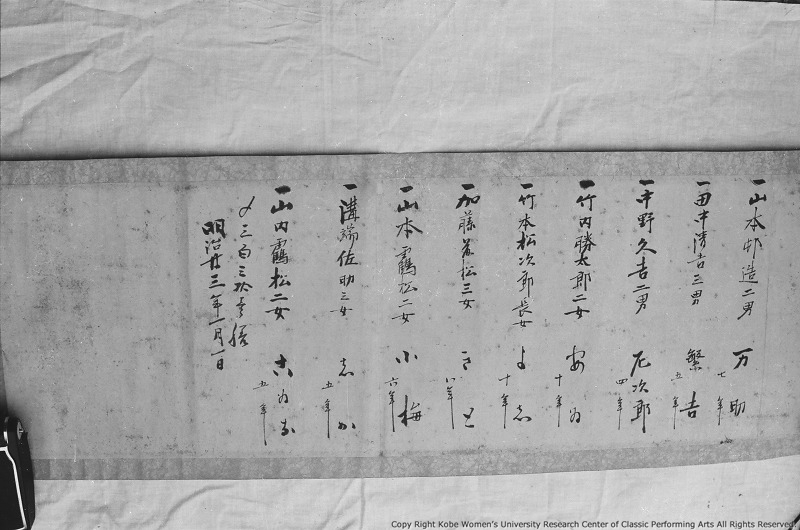 一山本邨造二男 万助
七年
一田中清吉三男 繁吉
五年
一中野久吉二男 尼次郎
四年
一竹内勝太郎二女
十年
一竹本松次郎長女 よ志
十年
一加藤 松三女 さと
八年
一山本靏松二女 小梅
六年
一溝端佐助三女 志か
五年
一山内靏松二女
五年
〆三百三拾壱
明治廿三年一月一日
Copy Right Kobe Women's University Research Center of Classic Performing Arts All Rights Reserved